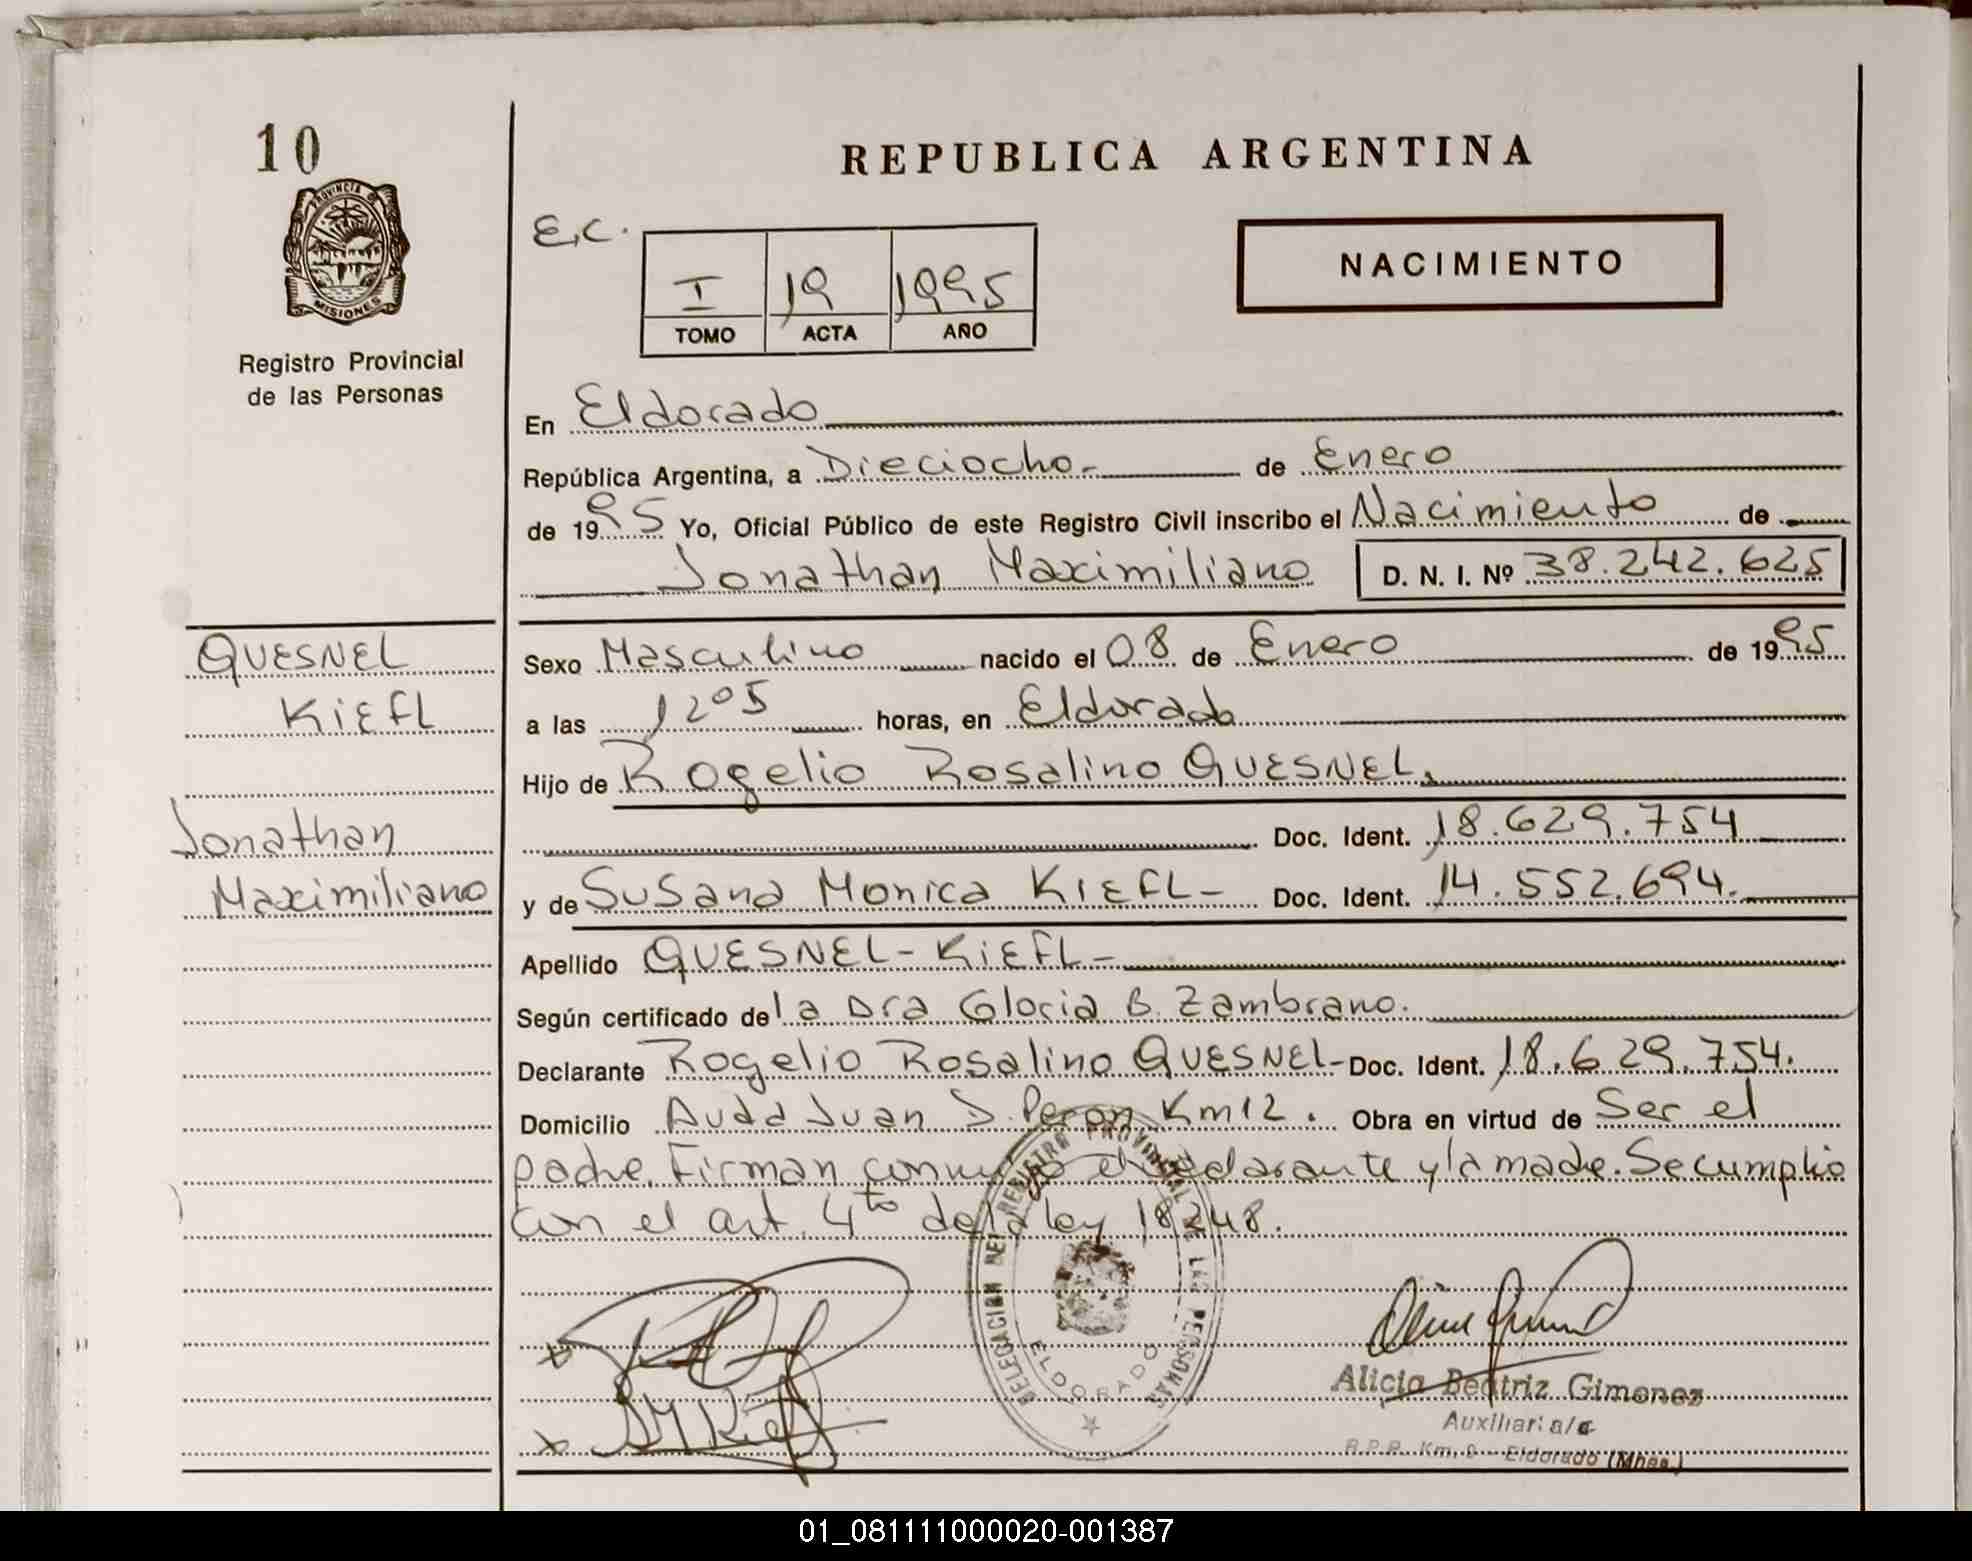 10
PROVINCIA DE
MISIONES
Registro Provincial
de las Personas
REPUBLICA ARGENTINA
E.C.
I 19 1995
TOMO ACTA AÑO
NACIMIENTO
En Eldorado
República Argentina, a Dieciocho.- de Enero
de 1995 Yo, Oficial Público de este Registro Civil inscribo el Nacimiento de
Jonathan Maximiliano D. N. I. Nº 38.242.625
QUESNEL
KiEFL
Jonathan
Maximiliano
Sexo Masculino nacido el 08 de Enero de 1995
a las 1205 horas, en Eldorado
Hijo de Rogelio Rosalino QUESNEL.
Doc. Ident. 18.629.754
y de Susana Monica KIEFL- Doc. Ident. 14.552.694.
Apellido QUESNEL-KiEFL-
Según certificado de la Dra Gloria B. Zambrano.
Declarante Rogelio Rosalino QUESNEL- Doc. Ident. 18.629.754.
Domicilio Avda Juan D. Peron Km 12. Obra en virtud de Ser el
padre. Firman conmigo el declarante y la madre. Se cumplio
con el art. 4to de la ley 18248.
DELEGACION DEL REGISTRO PROVINCIAL DE LAS PERSONAS
ELDORADO
Alicia Beatriz Gimenez
Auxiliar a/c
R.P.P. Km. 9 - Eldorado (Mnes.)
01_081111000020-001387